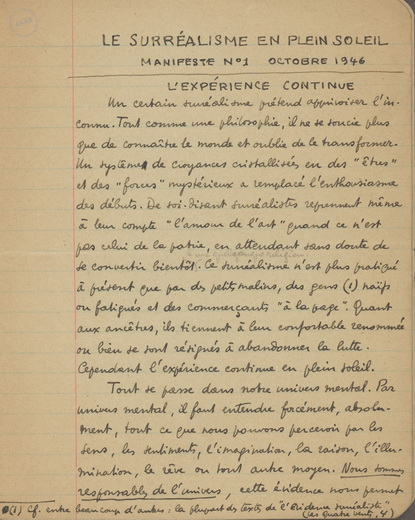 LE SURRÉALISME EN PLEIN SOLEIL
MANIFESTE N°1 OCTOBRE 1946
L'EXPÉRIENCE CONTINUE
Un certain surréalisme prétend apprivoiser l'in-
connu. Tout comme une philosophie, il ne se soucie plus
que de connaître le monde et oublie de le transformer.
Un système de croyances cristallisés en des "êtres"
et des "forces" mystérieux a remplacé l'enthousiasme
des débuts. De soi-disant surréalistes reprennent même
à leur compte "l'amour de l'art" quand ce n'est
pas celui de la patrie, en attendant sans doute de
se convertir bientôt. Ce surréalisme n'est plus pratiqué
à présent que par des petits malins, des gens (1) naïfs
ou fatigués et des commerçants "à la page". Quant
aux ancêtres, ils tiennent à leur confortable renommée
ou bien se sont résignés à abandonner la lutte.
Cependant l'expérience continue en plein soleil.
Tout se passe dans notre univers mental. Par
univers mental, il faut entendre forcément, absolu-
ment, tout ce que nous pouvons percevoir par les
sens, les sentiments, l'imagination, la raison, l'illu-
mination, le rêve ou tout autre moyen. Nous sommes
responsables de l'univers, cette évidence nous permet
(1) Cf. entre beaucoup d'autres : la plupart des textes de l'"Evidence surréaliste"
(les quatre vents, 4)